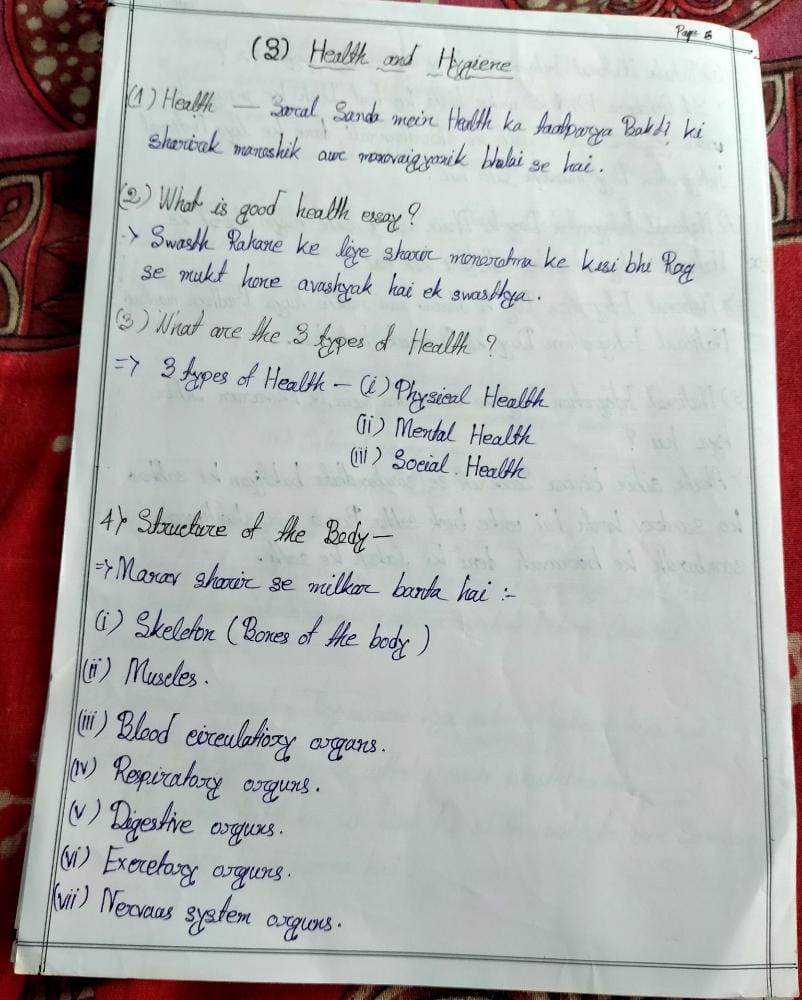 Page 5
(3) Health and Hygiene
(1) Health — Saral Sanda mein Health ka taatparya Bakti ki
sharirik manashik awr manovaigyanik bhalai se hai.
(2) What is good health essay?
-> Swasth Rahane ke liye sharir manoratma ke kisi bhi Rog
se mukt hone avashyak hai ek swasthya.
(3) What are the 3 types of Health?
=> 3 types of Health — (i) Physical Health
(ii) Mental Health
(iii) Social Health
4) Structure of the Body —
=> Manav sharir se milkar banta hai :-
(i) Skeleton (Bones of the body)
(ii) Muscles.
(iii) Blood circulatiory organs.
(iv) Respiratory orguns.
(v) Digestive orguns.
(vi) Excretory orguns.
(vii) Nervaas system orguns.